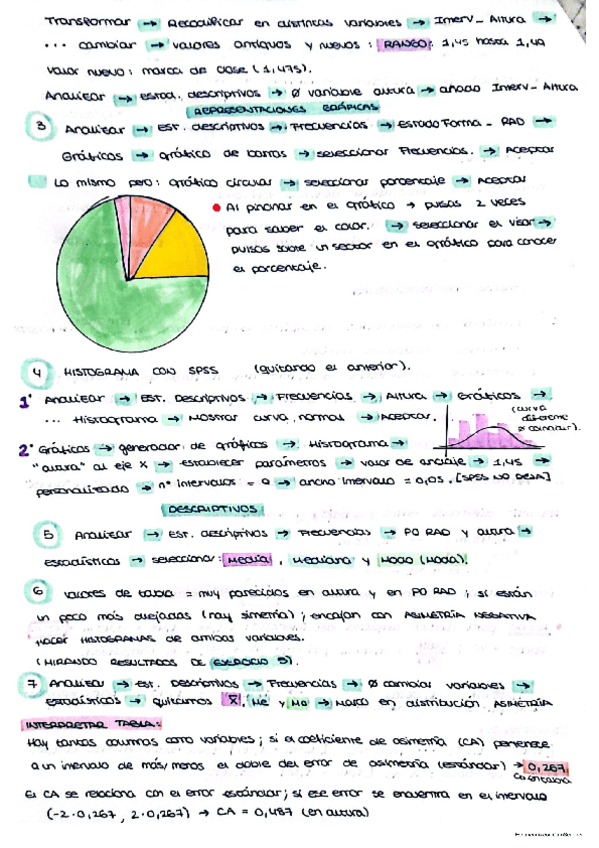 Transformar → Recodificar en distintas variables → Interv_Altura →
... cambiar → valores antiguos y nuevos : RANGO: 1,45 hasta 1,49
valor nuevo: marca de clase (1,475).
Analizar → estad. descriptivos → Ø variable altura → añado Interv_Altura
REPRESENTACIONES GRÁFICAS
3 Analizar → Est. descriptivos → Frecuencias → Estado Forma_RAD →
Gráficos → gráfico de barras → seleccionar Frecuencias. → Aceptar
Lo mismo pero: gráfico circular → seleccionar porcentaje → Aceptar
Al pinchar en el gráfico → pulsas 2 veces
para saber el color. → seleccionar el visor →
pulsas sobre un sector en el gráfico para conocer
el porcentaje.
4 HISTOGRAMA CON SPSS (quitando el anterior).
1º Analizar → Est. Descriptivos → Frecuencias → Altura → Gráficos →
... Histograma → Mostrar curva normal → Aceptar.
(curva diferente Ø coincidir).
2º Gráficos → generador de gráficos → Histograma →
"altura" al eje X → establecer parámetros → valor de anclaje → 1,45 →
personalizado → nº intervalos = 9 → ancho intervalo = 0,05. [SPSS NO DEJA]
DESCRIPTIVOS
5 Analizar → Est. descriptivos → Frecuencias → PO RAD y altura →
estadísticos → seleccionar: Media, Mediana y Modo (Moda).
6 valores de tabla = muy parecidos en altura y en PO RAD ; si están
un poco más alejadas (hay simetría) ; encajan con ASIMETRÍA NEGATIVA
HACER HISTOGRAMAS de ambas variables.
(MIRANDO RESULTADOS DE EJERCICIO 5).
7 Analizar → est. Descriptivos → Frecuencias → Ø cambiar variables →
estadísticos → quitamos X̄, Me y Mo → Marco en distribución ASIMETRÍA
INTERPRETAR TABLA:
Hay tantas columnas como variables ; si el coeficiente de asimetría (CA) pertenece
a un intervalo de más/menos el doble del error de asimetría (estándar) → 0,267
El CA se relaciona con el error estándar; si ese error se encuentra en el intervalo
(-2·0,267, 2·0,267) → CA = 0,487 (en altura)